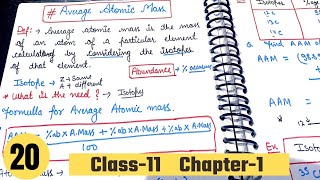 # Average Atomic Mass
Def:→ Average atomic mass is the mass
of an atom of a particular element
calculating by considering the isotopes
of that element.
Abundance → %
Isotope → Z → Same
A → different
* What is the need? → Isotopy
formulla for Average Atomic mass.
AAM = %ab x A.Mass + %ab x A.Mass + %ab x A.Mass
100
Isotopes
12 C
13 C
find AAM
AAM =
AAM =
Ex.
Isotope
35
20
Class-11 Chapter-1